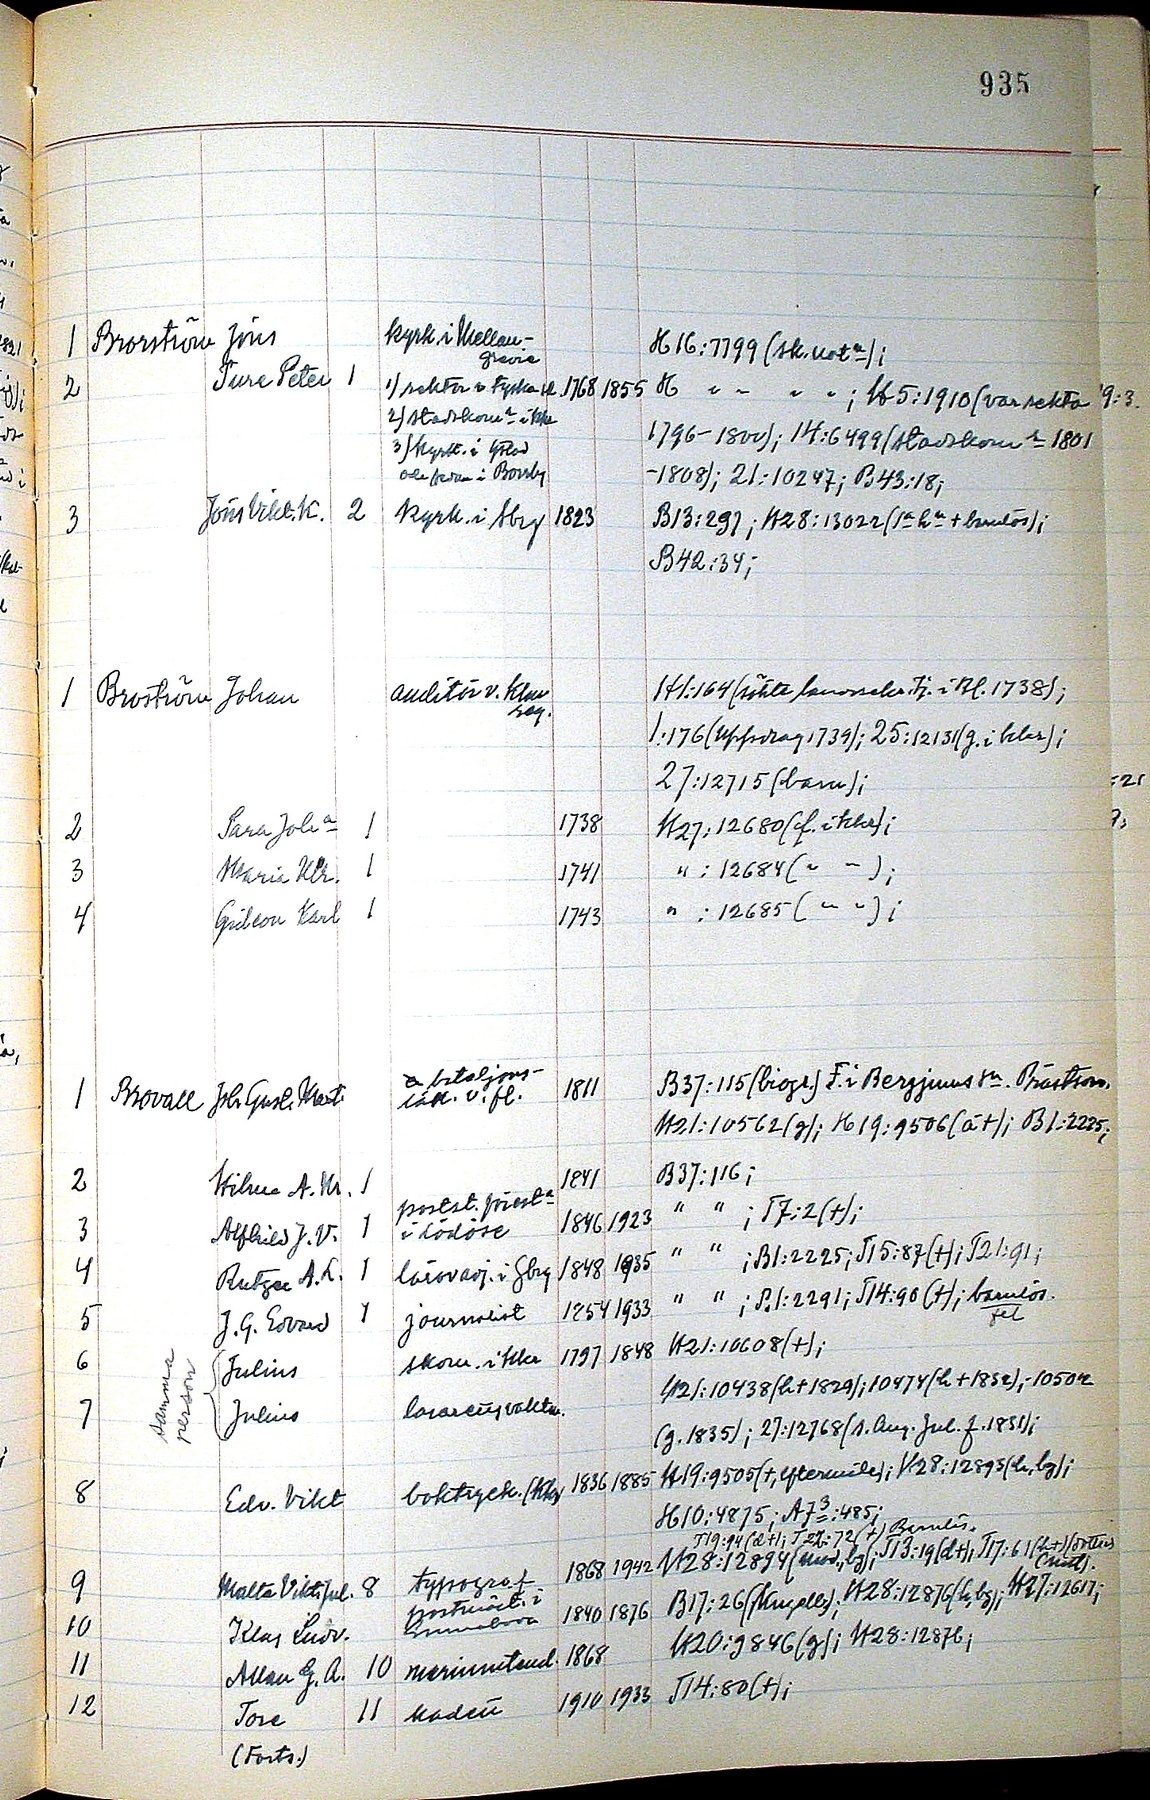 935
1 Brorström Jöns kyrk. i Mellan- H16:7799 (sk. not);
grevie
2 Ture Peter 1 1) rektor v. Tyska sk. 1768 1855 H " " " " ; H5:1910 (var rektor 19:3.
2) stadskom i Kkr 1796-1800); 14:6499 (stadskom 1801
3) kyrk. i Ystad -1808); 21:10247; B43:18;
och sedan i Borrby
3 Jöns Vilh. K. 2 kyrk. i Gbg 1823 B13:297; H28:13022 (1a h + barnlös);
B42:34;
1 Broström Johan auditör v. H1:164 (sökte i Bl. 1738);
reg. 1:176 (Uppdrag 1739); 25:12131 (g. i kkr);
27:12715 (barn);
2 Sara Joha 1 1738 H27:12680 (f. i kkr);
3 Maria Kr. 1 1741 " : 12684 ( " " );
4 Gideon Karl 1 1743 " : 12685 ( " " );
1 Brovall Joh. Gust. Mart. bataljons- 1811 B37:115 (biogr.) F. i Bergjums sn. Prästson.
läk. v. fl. H21:10562 (g); H19:9506 (a +); B1:2225;
2 Hilma A. M. 1 1841 B37:116;
3 Alfhild J. V. 1 postst. föresta 1846 1923 " " ; T7:2 (+);
i Lödöse
4 Rutger A. L. 1 lärov.adj. i Gbg 1848 1935 " " ; B1:2225; T15:87 (+); T21:91;
5 J. G. Edvard 1 journalist 1854 1933 " " ; B1:2291; T14:90 (+); barnlös.
fel
6 Julius skom. i kkr 1797 1848 H21:10608 (+);
samma person
7 Julius lasarettsvaktm. H21:10438 (h + 1829); 10474 (h + 1832); 10502
(g. 1835); 27:12768 (s. Aug. Jul. f. 1831);
8 Edv. Vikt boktryck. (Kkr) 1836 1885 H19:9505 (+, eftermäle); H28:12893 (h, bg);
H10:4875; A7³:485;
T19:94 (d +); T22:72 (+) Barnlös.
9 Malte Vikt. Jul. 8 typograf 1868 1942 H28:12894 (mod., bg); T13:19 (d +); T17:61 (h +) (dotter
10 Klas Ludv. postmäst. i 1840 1876 B17:26 ; H28:12876 (h, bg); H27:12617;
H20:9846 (g); H28:12876;
11 Allan G. A. 10 marinintend. 1868
12 Tore 11 kadett 1910 1933 T14:80 (+);
(Forts.)